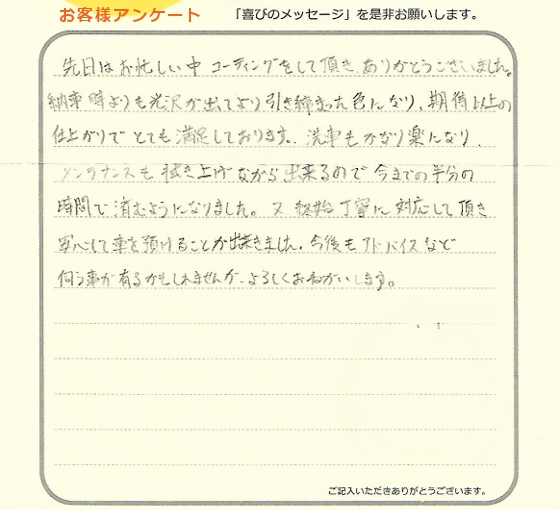 お客様アンケート 「喜びのメッセージ」を是非お願いします。
先日はお忙しい中 コーティングをして頂き、ありがとうございました。
納車時よりも光沢が出てより引き締まった色になり、期待以上の
仕上がりで とても満足しております。洗車もかなり楽になり、
メンテナンスも拭き上げながら出来るので今までの半分の
時間で済むようになりました。又、終始丁寧に対応して頂き
安心して車を預けることが出来ました。今後もアドバイスなど
伺う事が有るかもしれませんが、よろしくおねがいします。
ご記入いただきありがとうございます。